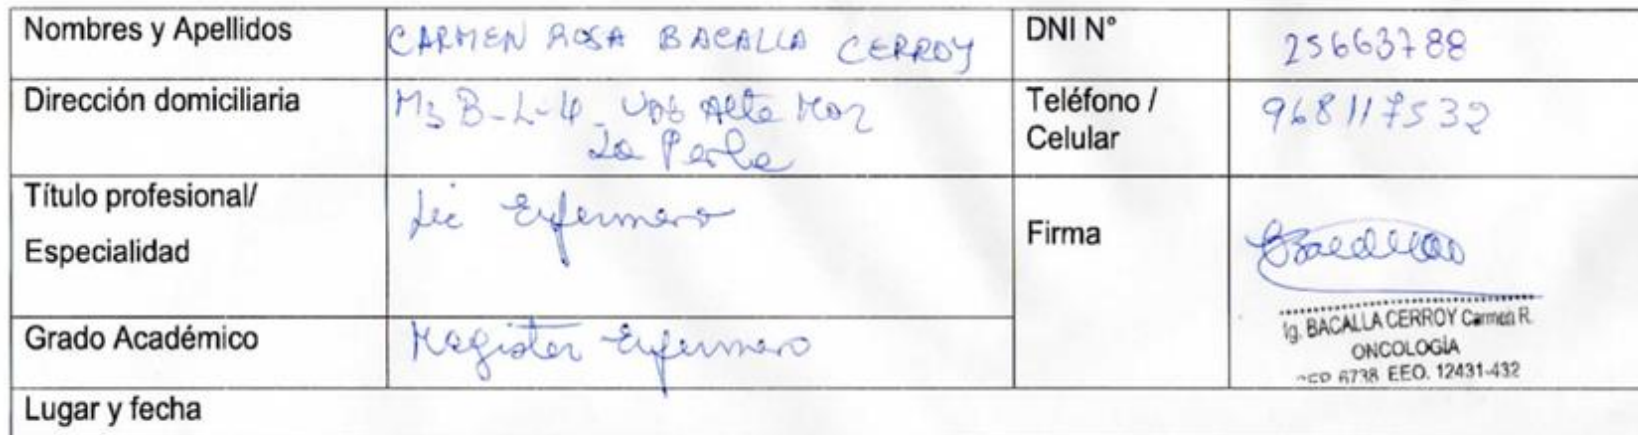 Nombres y Apellidos CARMEN ROSA BACALLA CERROY DNI N° 25663788
Dirección domiciliaria Mz B-L-4 Urb Alta Mar
La Perla
Teléfono / Celular 968117532
Título profesional/
Especialidad
Lic Enfermera
Firma
Lg. BACALLA CERROY Carmen R.
ONCOLOGÍA
CEP 6738 EEO. 12431-432
Grado Académico Magister Enfermera
Lugar y fecha